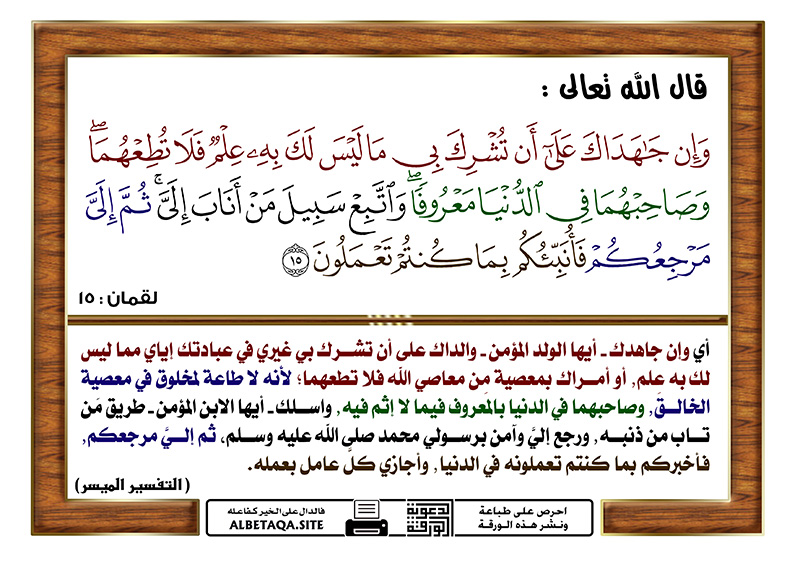 قال الله تعالى :
وَإِن جَٰهَدَاكَ عَلَىٰٓ أَن تُشْرِكَ بِى مَا لَيْسَ لَكَ بِهِۦ عِلْمٌ فَلَا تُطِعْهُمَاۖ
وَصَاحِبْهُمَا فِى ٱلدُّنْيَا مَعْرُوفًاۖ وَٱتَّبِعْ سَبِيلَ مَنْ أَنَابَ إِلَىَّۚ ثُمَّ إِلَىَّ
مَرْجِعُكُمْ فَأُنَبِّئُكُم بِمَا كُنتُمْ تَعْمَلُونَ ١٥
لقمان : ١٥
أي وإن جاهدك ـ أيها الولد المؤمن ـ والداك على أن تشرك بي غيري في عبادتك إياي مما ليس
لك به علم, أو أمراك بمعصية مِن معاصي الله فلا تطعهما؛ لأنه لا طاعة لمخلوق في معصية
الخالق, وصاحبهما في الدنيا بالمعروف فيما لا إثم فيه, واسلك ـ أيها الابن المؤمن ـ طريق مَن
تاب من ذنبه, ورجع إليَّ وآمن برسولي محمد صلى الله عليه وسلم, ثم إليَّ مرجعكم,
فأخبركم بما كنتم تعملونه في الدنيا, وأجازي كلَّ عامل بعمله.
(التفسير الميسر)
احرص على طباعة
ونشر هذه الورقة
الورقة الدعوية
فالدال على الخير كفاعله
ALBETAQA.SITE